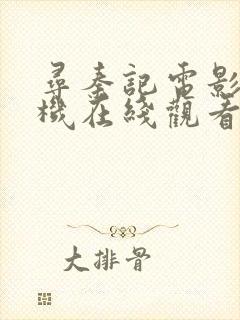 尋秦記電影
機在綫觀看
大排骨